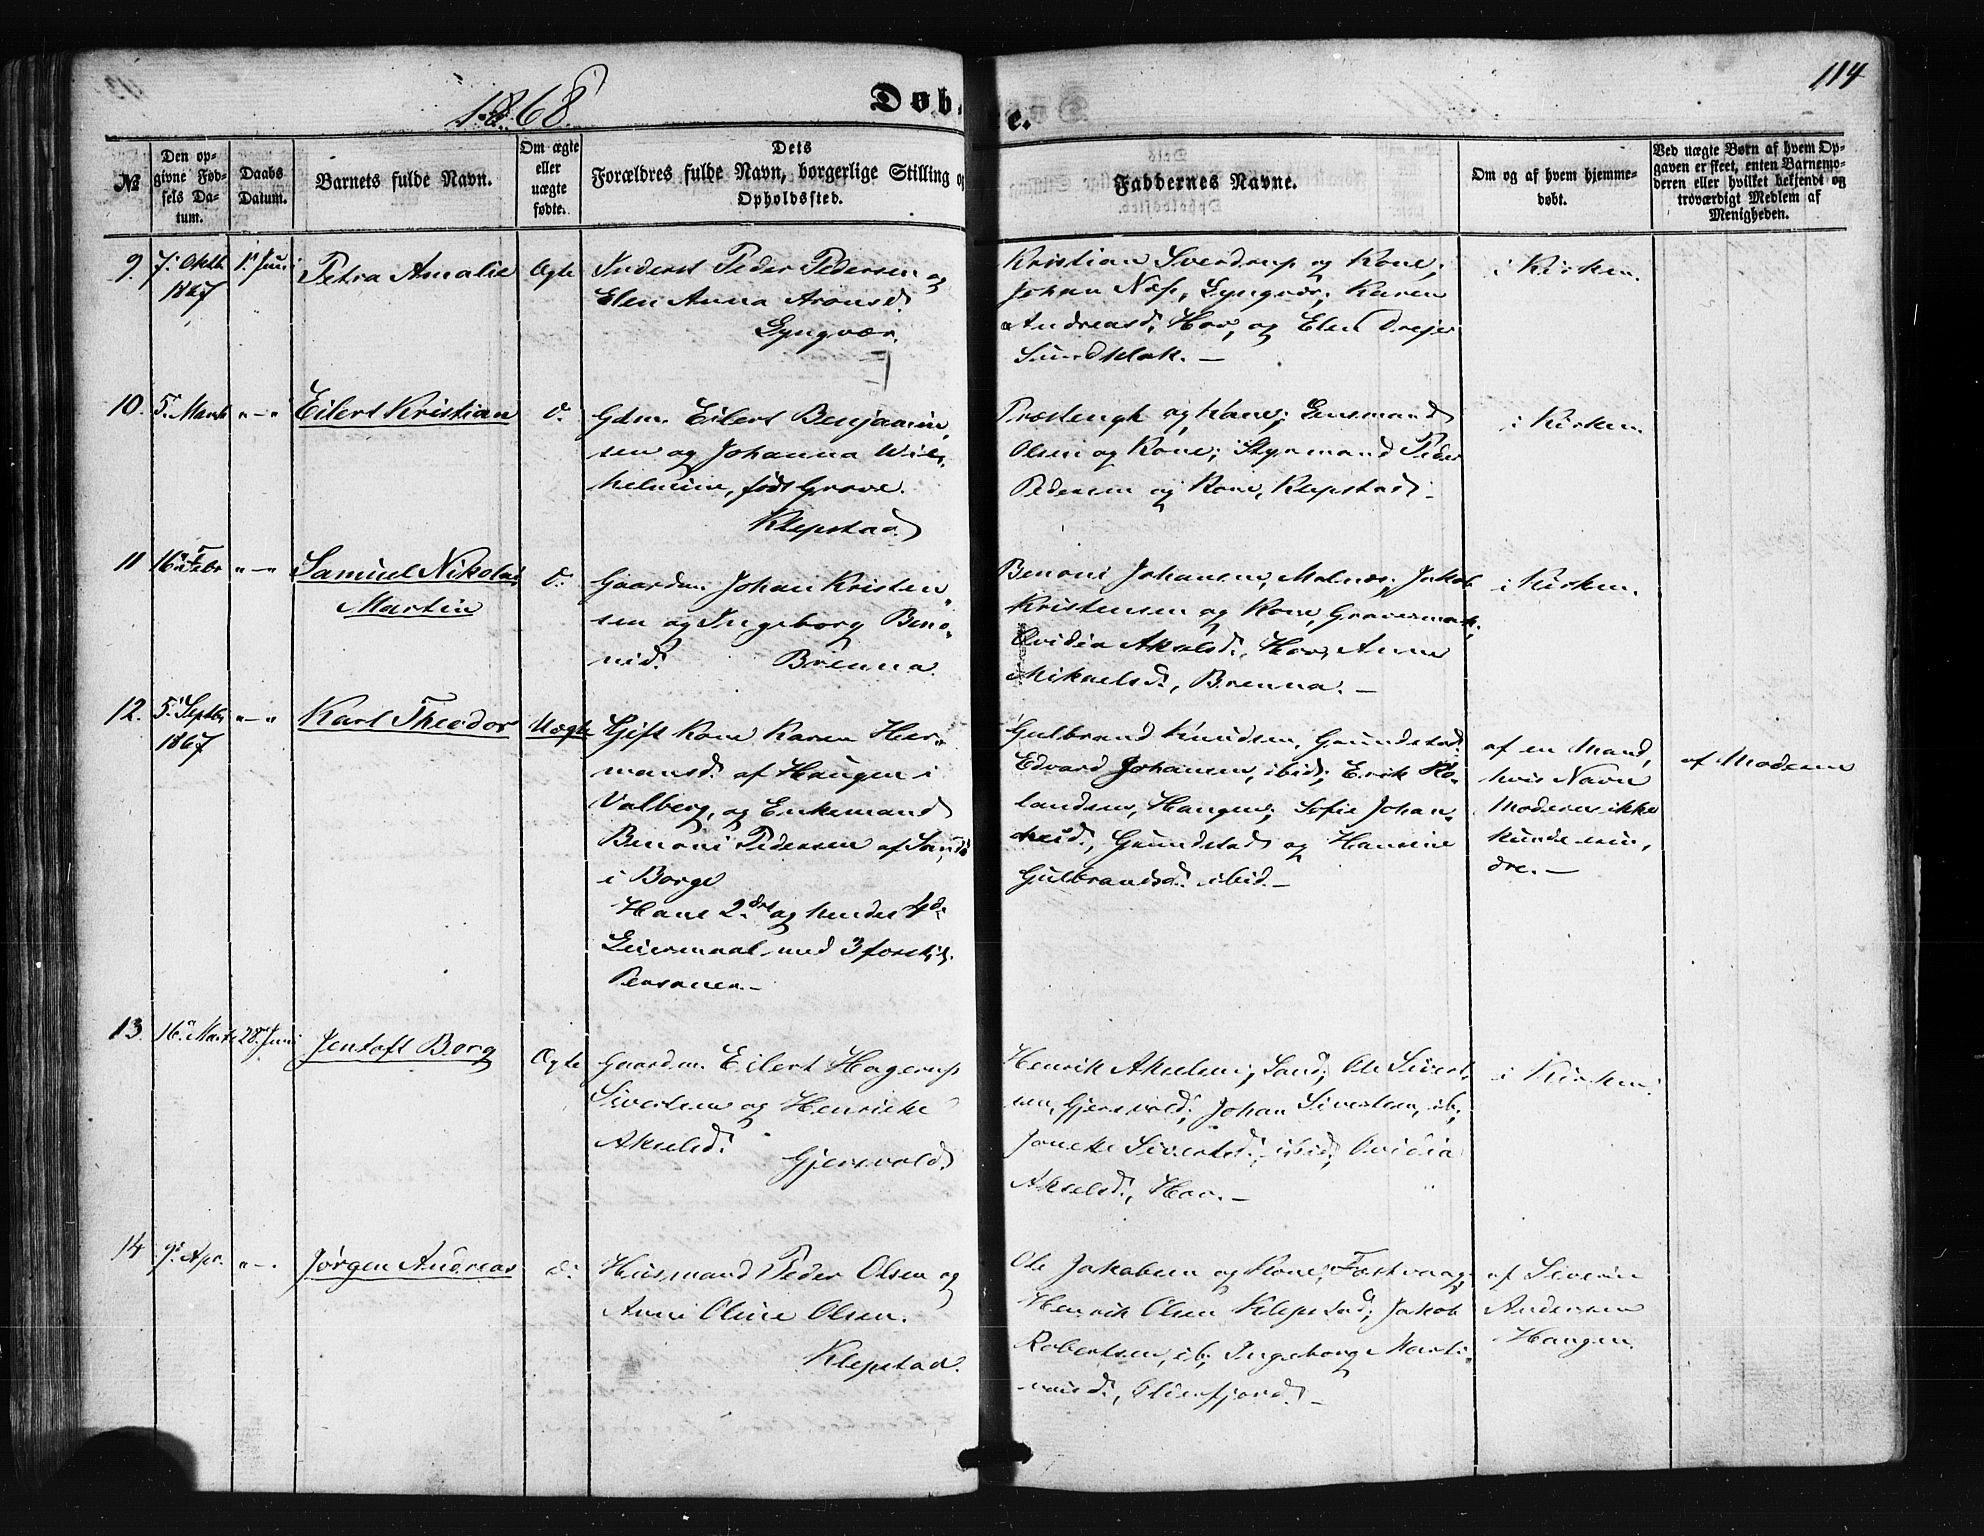 114
1868.
Døbte.
№
Den opgivne Fødsels Datum.
Daabs Datum.
Barnets fulde Navn.
Om ægte eller uægte fødte.
Dets Forældres fulde Navn, borgerlige Stilling og Opholdssted.
Faddernes Navne.
Om og af hvem hjemmedøbt.
Ved uægte Børn af hvem Opgaven er skeet, enten Barnemoderen eller hvilket bekjendt og troværdigt Medlem af Menigheden.
9. 7. Oktb. 1867
1. Juni
Petra Amalie
Ægte
Inderst Peder Pedersen og
Elen Anna Aronsd.
Lyngvær.
Kristian Sverdrup og Kone;
Johan Næss, Lyngvær; Karen
Andreasd., Hov, og Elen Dreyer
Sundklak. —
i Kirken.
10. 5. Marts
" — "
Eilert Kristian
d.
Gdm. Eilert Benjamin-
sen og Johanna Wil-
helmine, født Grave.
Klepstad
og Kone; Lensmand
Olsen og Kone; Styrmand Peder
Pedersen og Kone, Klepstad. —
i Kirken.
11 16. Febr
" — "
Samuel Nikolai
Martin
d.
Gaardm. Johan Kristen-
sen og Ingeborg Beno-
nid. Brenna.
Benoni Johansen, Molnes; Jakob
Kristensen og Kone, Gravermark;
Ovidia Akselsd., Hov, Anne
Mikaelsd., Brenna. —
i Kirken.
12. 5. Septbr 1867
" — "
Karl Theodor
Uægte
Gift Kone Karen Her-
mansd. af Haugen i
Valberg, og Enkemand
Benoni Pedersen af Sand
i Borge
Hans 2det og hendes 4de
Leiermaal med 3 forskjl.
Personer. —
Gulbrand Knudsen, Grundstad;
Edvard Johansen, ibid; Erik Ro-
landsen, Haugen; Sofie Johan-
nesd., Grundstad og Hansine
Gulbrandsd. ibid. —
af en Mand,
hvis Navn
Moderen ikke
kunde erin-
dre. —
af Moderen
13. 16. Marts
28. Juni
Jentoft Borg
Ægte
Gaardm. Eilert Hagerup
Sivertsen og Henrikke
Akselsd.
Gjersvold
Henrik Akselsen, Sand; Ole Sivert-
sen, Gjersvold; Johan Sivertsen, ib;
Sivertsd. ibid; Ovidia
Akselsd., Hov. —
i Kirken.
14 9. Apr.
" — .
Jørgen Andreas
d.
Husmand Peder Olsen og
Anne Oline Olsen.
Klepstad.
Ole Jakobsen og Kone, Festvaag;
Henrik Olsen Klepstad; Jakob
Robertsen, ib; Ingeborg Marti-
nusd., Olderfjord. —
af Siverin
Andersen
Haugen.